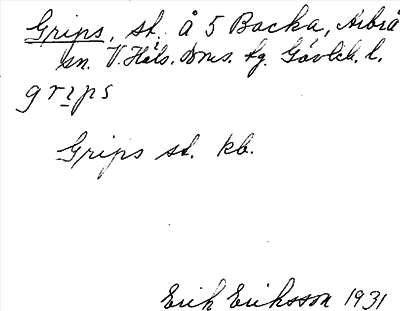 Grips, st. å 5 Backa, Arbrå
sn. V. Häls. Dms. tg. Gävleb. l.
grips
Grips st. kb.
Erik Eriksson 1931